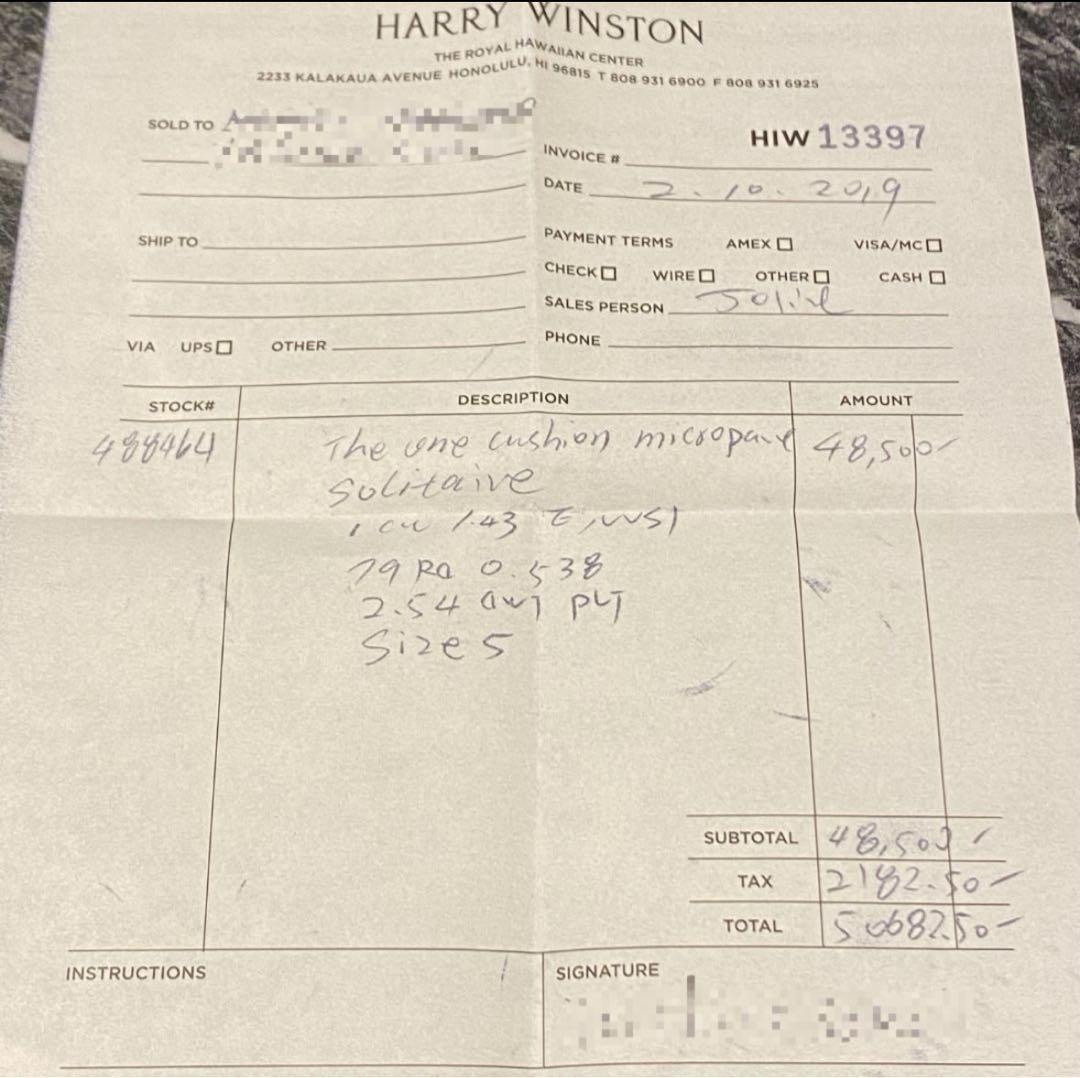 HARRY WINSTON
THE ROYAL HAWAIIAN CENTER
2233 KALAKAUA AVENUE HONOLULU, HI 96815 T 808 931 6900 F 808 931 6925
SOLD TO
HIW 13397
INVOICE #
DATE 2.10.2019
SHIP TO
PAYMENT TERMS AMEX VISA/MC
CHECK WIRE OTHER CASH
SALES PERSON
PHONE
VIA UPS OTHER
STOCK# DESCRIPTION AMOUNT
488464 The one cushion micropave 48,500-
Solitaire
1 cu 1.43 E, VVS1
79 RD 0.538
2.54 dwt PLT
Size 5
SUBTOTAL 48,500-
TAX 2182.50-
TOTAL 50682.50-
INSTRUCTIONS
SIGNATURE